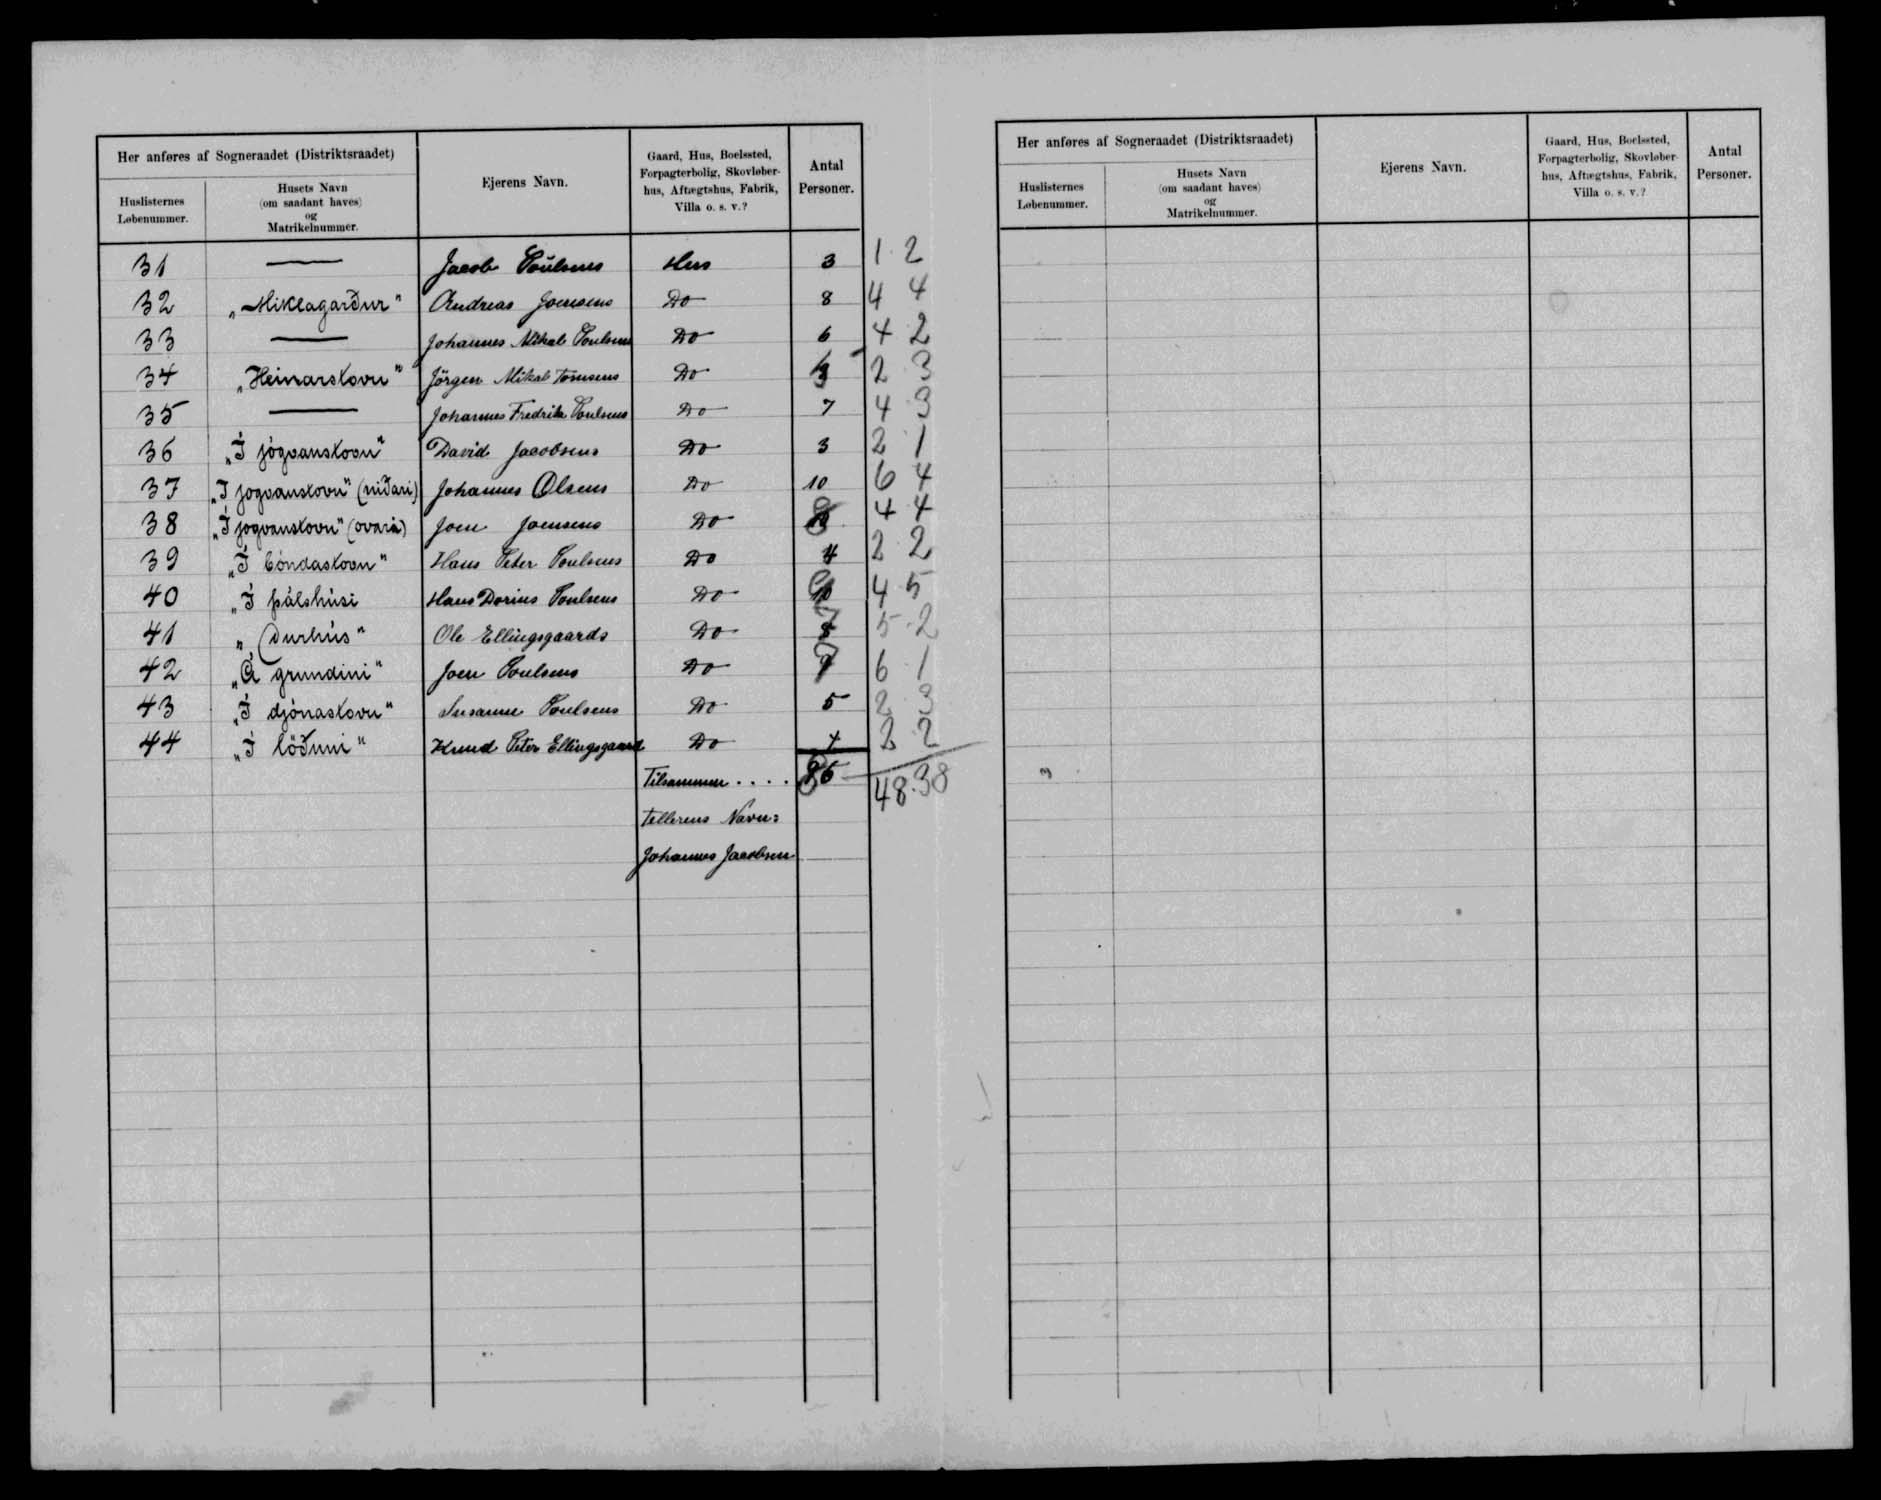 Her anføres af Sogneraadet (Distriktsraadet)
Huslisternes Løbenummer.
Husets Navn (om saadant haves) og Matrikelnummer.
Ejerens Navn.
Gaard, Hus, Boelssted, Forpagterbolig, Skovløberhus, Aftægtshus, Fabrik, Villa o. s. v.?
Antal Personer.
31 — Jacob Poulsens Hus 3 1 2
32 „Miklagarður" Andreas Joensens Do 8 4 4
33 — Johannes Mikal Poulsens Do 6 4 2
34 „Heinarstovu" Jörgen Mikal Tomsens Do 5 2 3
35 — Johannes Fredrik Poulsens Do 7 4 3
36 „Í jógvanstovu" David Jacobsens Do 3 2 1
37 „Í jogvanstovu" (niðari) Johannes Olsens Do 10 6 4
38 „Í jogvanstovu" (ovara) Joen Joensens Do 8 4 4
39 „Í bóndastovu" Hans Peter Poulsens Do 4 2 2
40 „Í pálshúsi Hans Dorius Poulsens Do 9 4 5
41 Ole Ellingsgaards Do 7 5 2
42 „Á grundini" Joen Poulsens Do 7 6 1
43 „Í djónastovu" Susanne Poulsens Do 5 2 3
44 „Í löðuni" Knud Peter Ellingsgaard Do 4 2 2
Tilsammen .... 86 48.38
Tellerens Navn:
Johannes Jacobsen
Her anføres af Sogneraadet (Distriktsraadet)
Huslisternes Løbenummer.
Husets Navn (om saadant haves) og Matrikelnummer.
Ejerens Navn.
Gaard, Hus, Boelssted, Forpagterbolig, Skovløberhus, Aftægtshus, Fabrik, Villa o. s. v.?
Antal Personer.